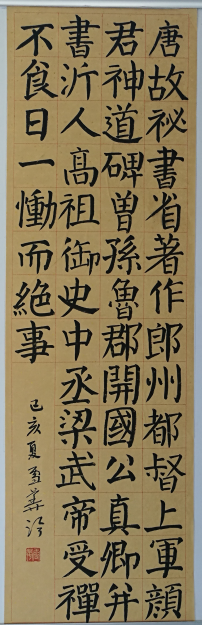 唐故祕書省著作郎州都督上軍顔
君神道碑曽孫魯郡開國公真卿并
書沂人高祖御史中丞梁武帝受禪
不食日一慟而絶事
己亥夏